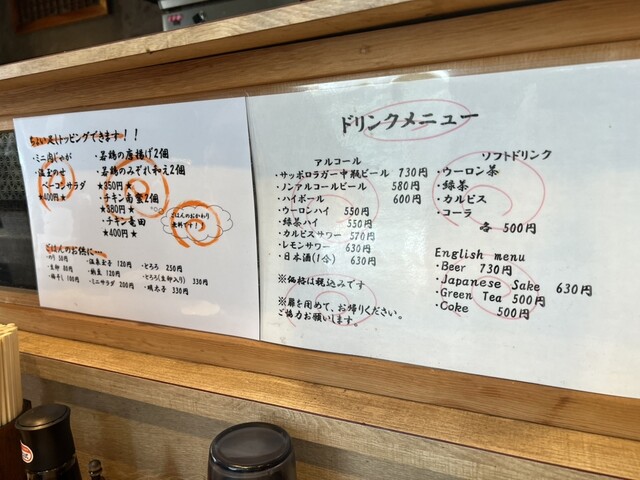 ちょい足しトッピングできます！！
・ミニ肉じゃが
・温玉のせ
ベーコンサラダ
★400円★
・若鶏の唐揚げ2個
・若鶏のみぞれ和え2個
★350円★
・チキン南蛮2個
★380円★
・チキン竜田
★400円★
ごはんのおかわり
無料です！
ごはんのお供に…
・のり 50円
・生卵 80円
・梅干し 100円
・温泉玉子 120円
・納豆 120円
・ミニサラダ 200円
・とろろ 250円
・とろろ(生卵入り) 330円
・明太子 330円
ドリンクメニュー
アルコール
・サッポロラガー中瓶ビール 730円
・ノンアルコールビール 580円
・ハイボール 600円
・ウーロンハイ 550円
・緑茶ハイ 550円
・カルピスサワー 570円
・レモンサワー 630円
・日本酒(1合) 630円
※価格は税込みです
※扉を閉めて、お帰りください。
ご協力お願いします。
ソフトドリンク
・ウーロン茶
・緑茶
・カルピス
・コーラ
各 500円
English menu
・Beer 730円
・Japanese Sake 630円
・Green Tea 500円
・Coke 500円